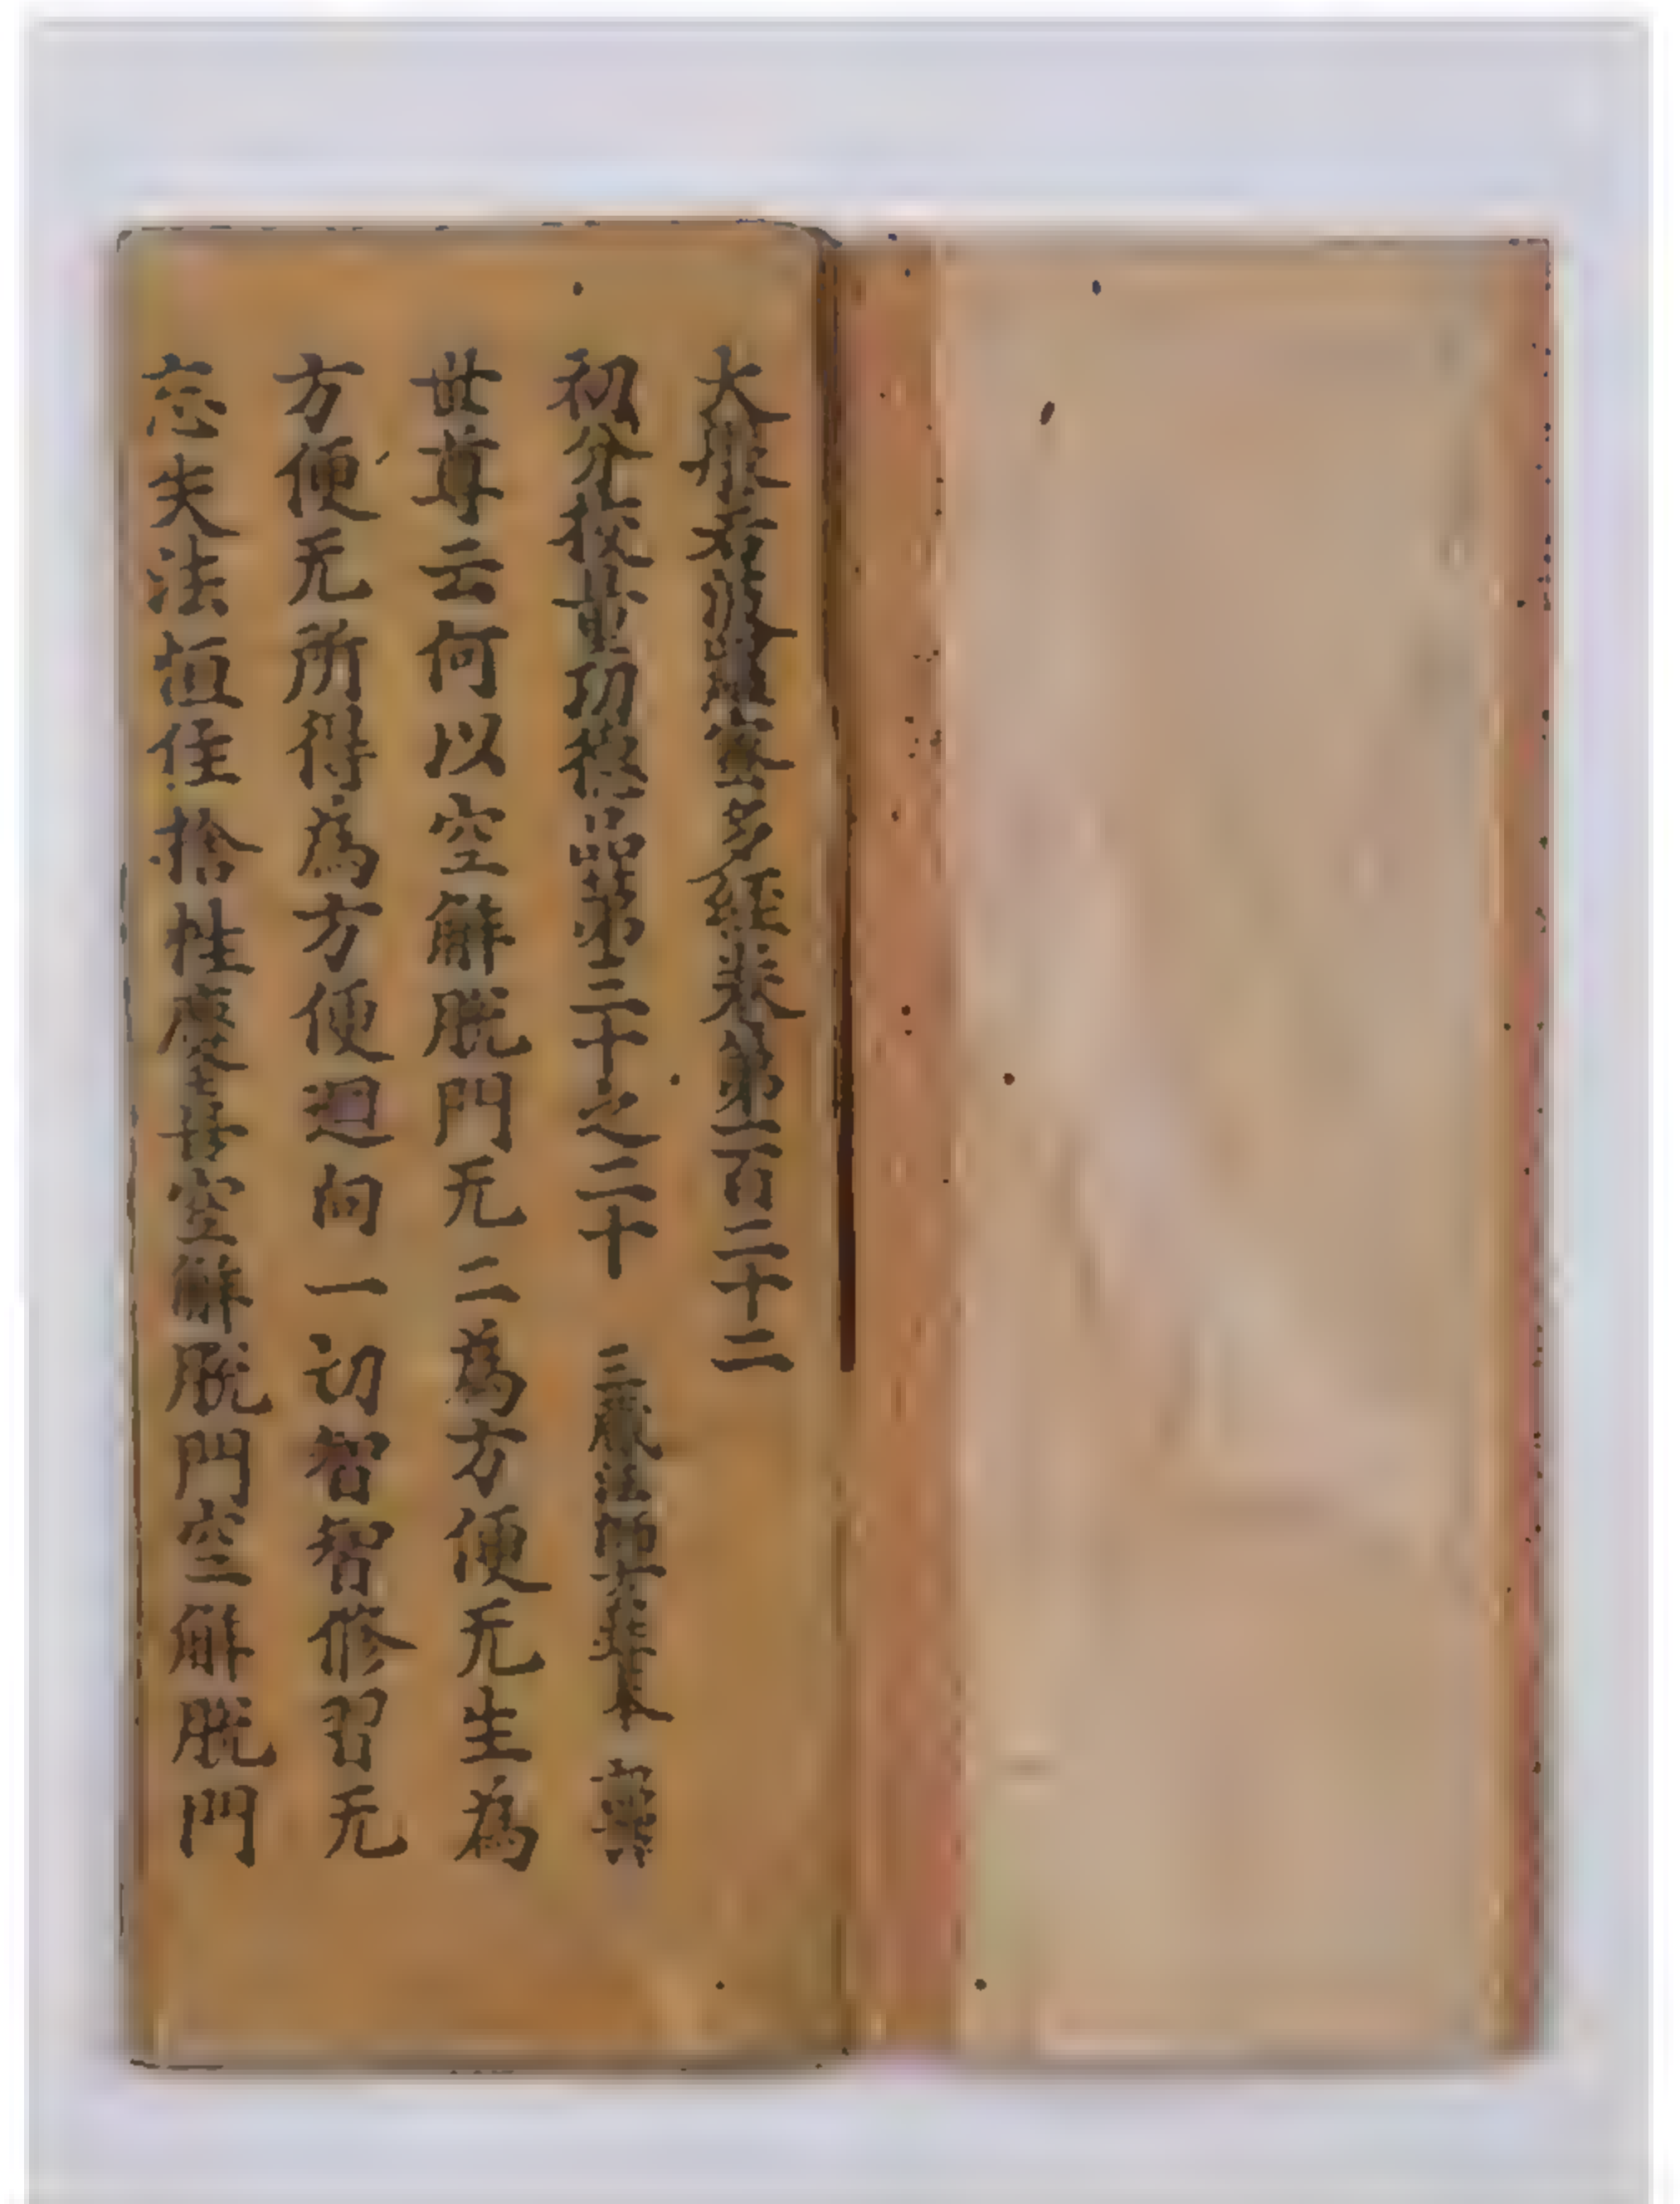 大般若波羅蜜多經卷第一百二十二
初分挍量功德品第三十之二十 三藏法師玄奘奉 詔譯
世尊云何以空解脫門无二為方便无生為
方便无所得為方便迴向一切智智修習无
忘失法恒住捨性慶喜空解脫門空解脫門